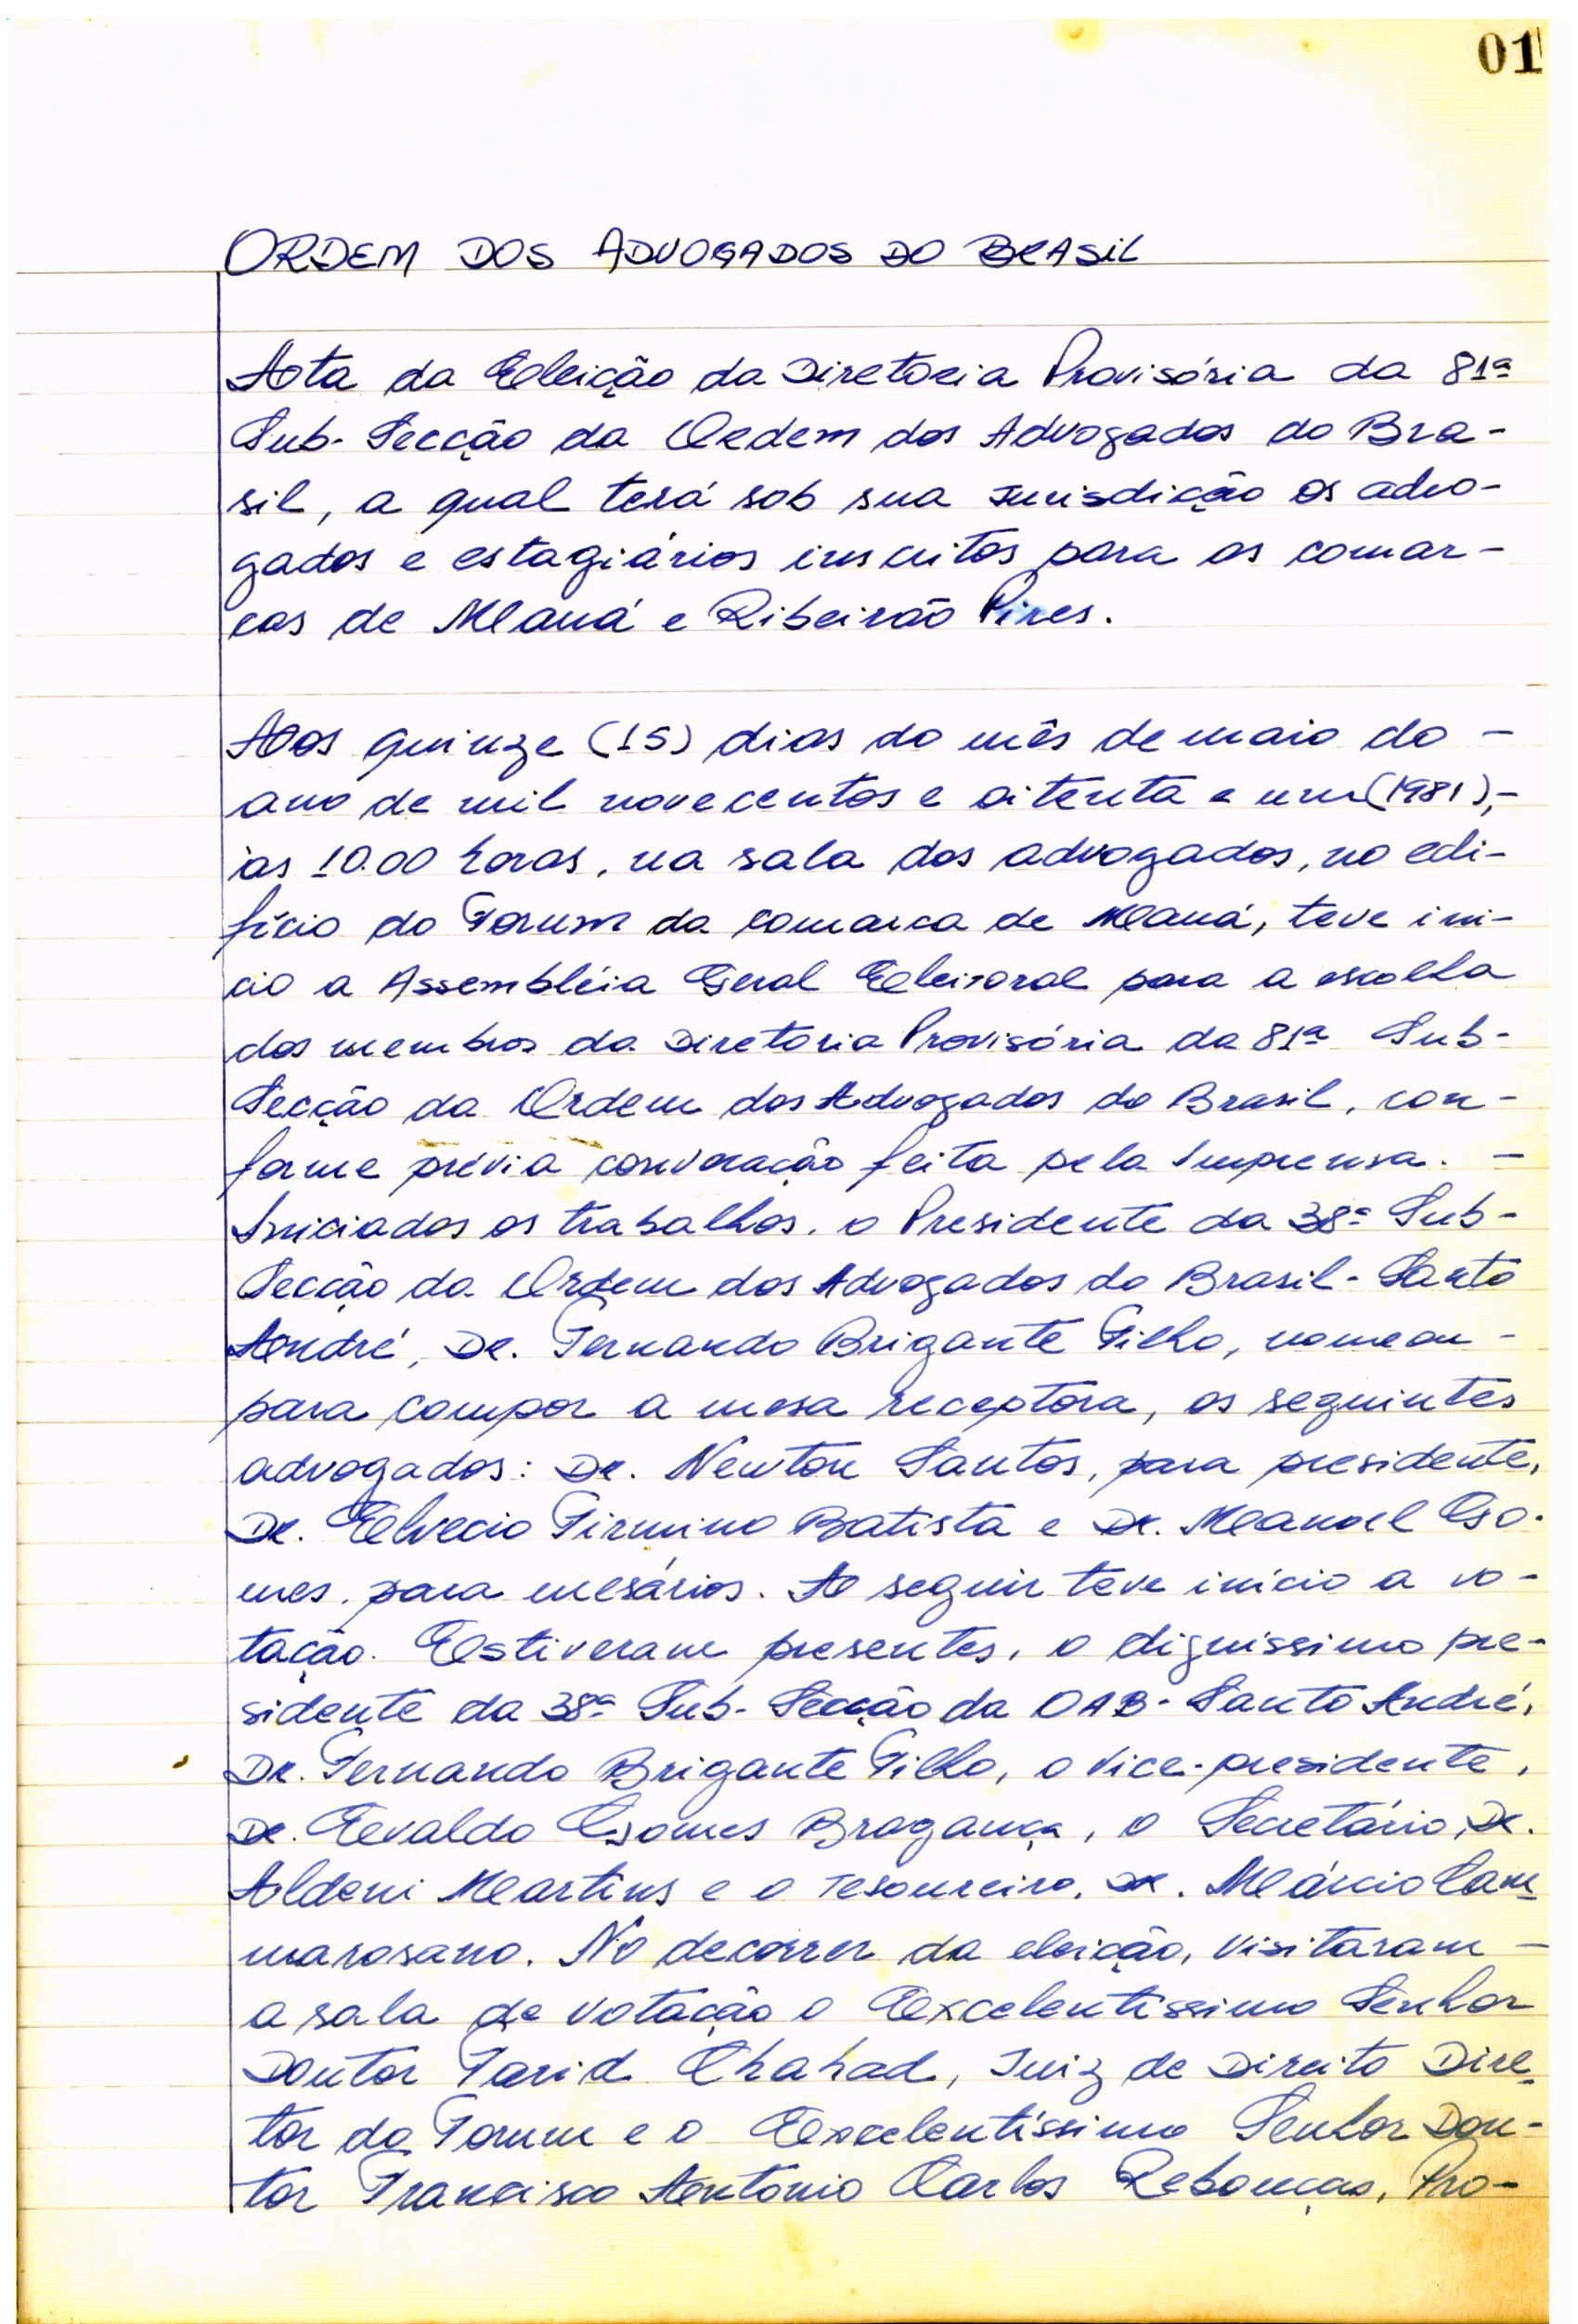 01
ORDEM DOS ADVOGADOS DO BRASIL
Ata da Eleição da Diretoria Provisória da 81ª
Sub-Secção da Ordem dos Advogados do Bra-
sil, a qual terá sob sua Jurisdição os advo-
gados e estagiários inscritos para as comar-
cas de Mauá e Ribeirão Pires.
Aos quinze (15) dias do mês de maio do -
ano de mil novecentos e oitenta e um (1981),-
às 10.00 horas, na sala dos advogados, no edi-
fício do Forum da comarca de Mauá, teve iní-
cio a Assembléia Geral Eleitoral para a escolha
dos membros da Diretoria Provisória da 81ª Sub-
Secção da Ordem dos Advogados do Brasil, con-
forme prévia convocação feita pela Imprensa. -
Iniciados os trabalhos, o Presidente da 38ª Sub-
Secção da Ordem dos Advogados do Brasil - Santo
André, Dr. Fernando Brigante Filho, nomeou -
para compor a mesa receptora, os seguintes
advogados: Dr. Newton Santos, para presidente,
Dr. Elvecio Firmino Batista e Dr. Manoel Go-
mes, para mesários. A seguir teve início a vo-
tação. Estiveram presentes, o digníssimo pre-
sidente da 38ª Sub-Secção da OAB - Santo André,
Dr. Fernando Brigante Filho, o vice-presidente,
Dr. Evaldo Gomes Bragança, o Secretário, Dr.
Aldeni Martins e o Tesoureiro, Dr. Márcio Cam
marosano. No decorrer da eleição, visitaram -
a sala de votação o Excelentíssimo Senhor
Doutor Farid Chahad, Juiz de Direito Dire-
tor do Forum e o Excelentíssimo Senhor Dou-
tor Francisco Antonio Carlos Rebouças, Pro-